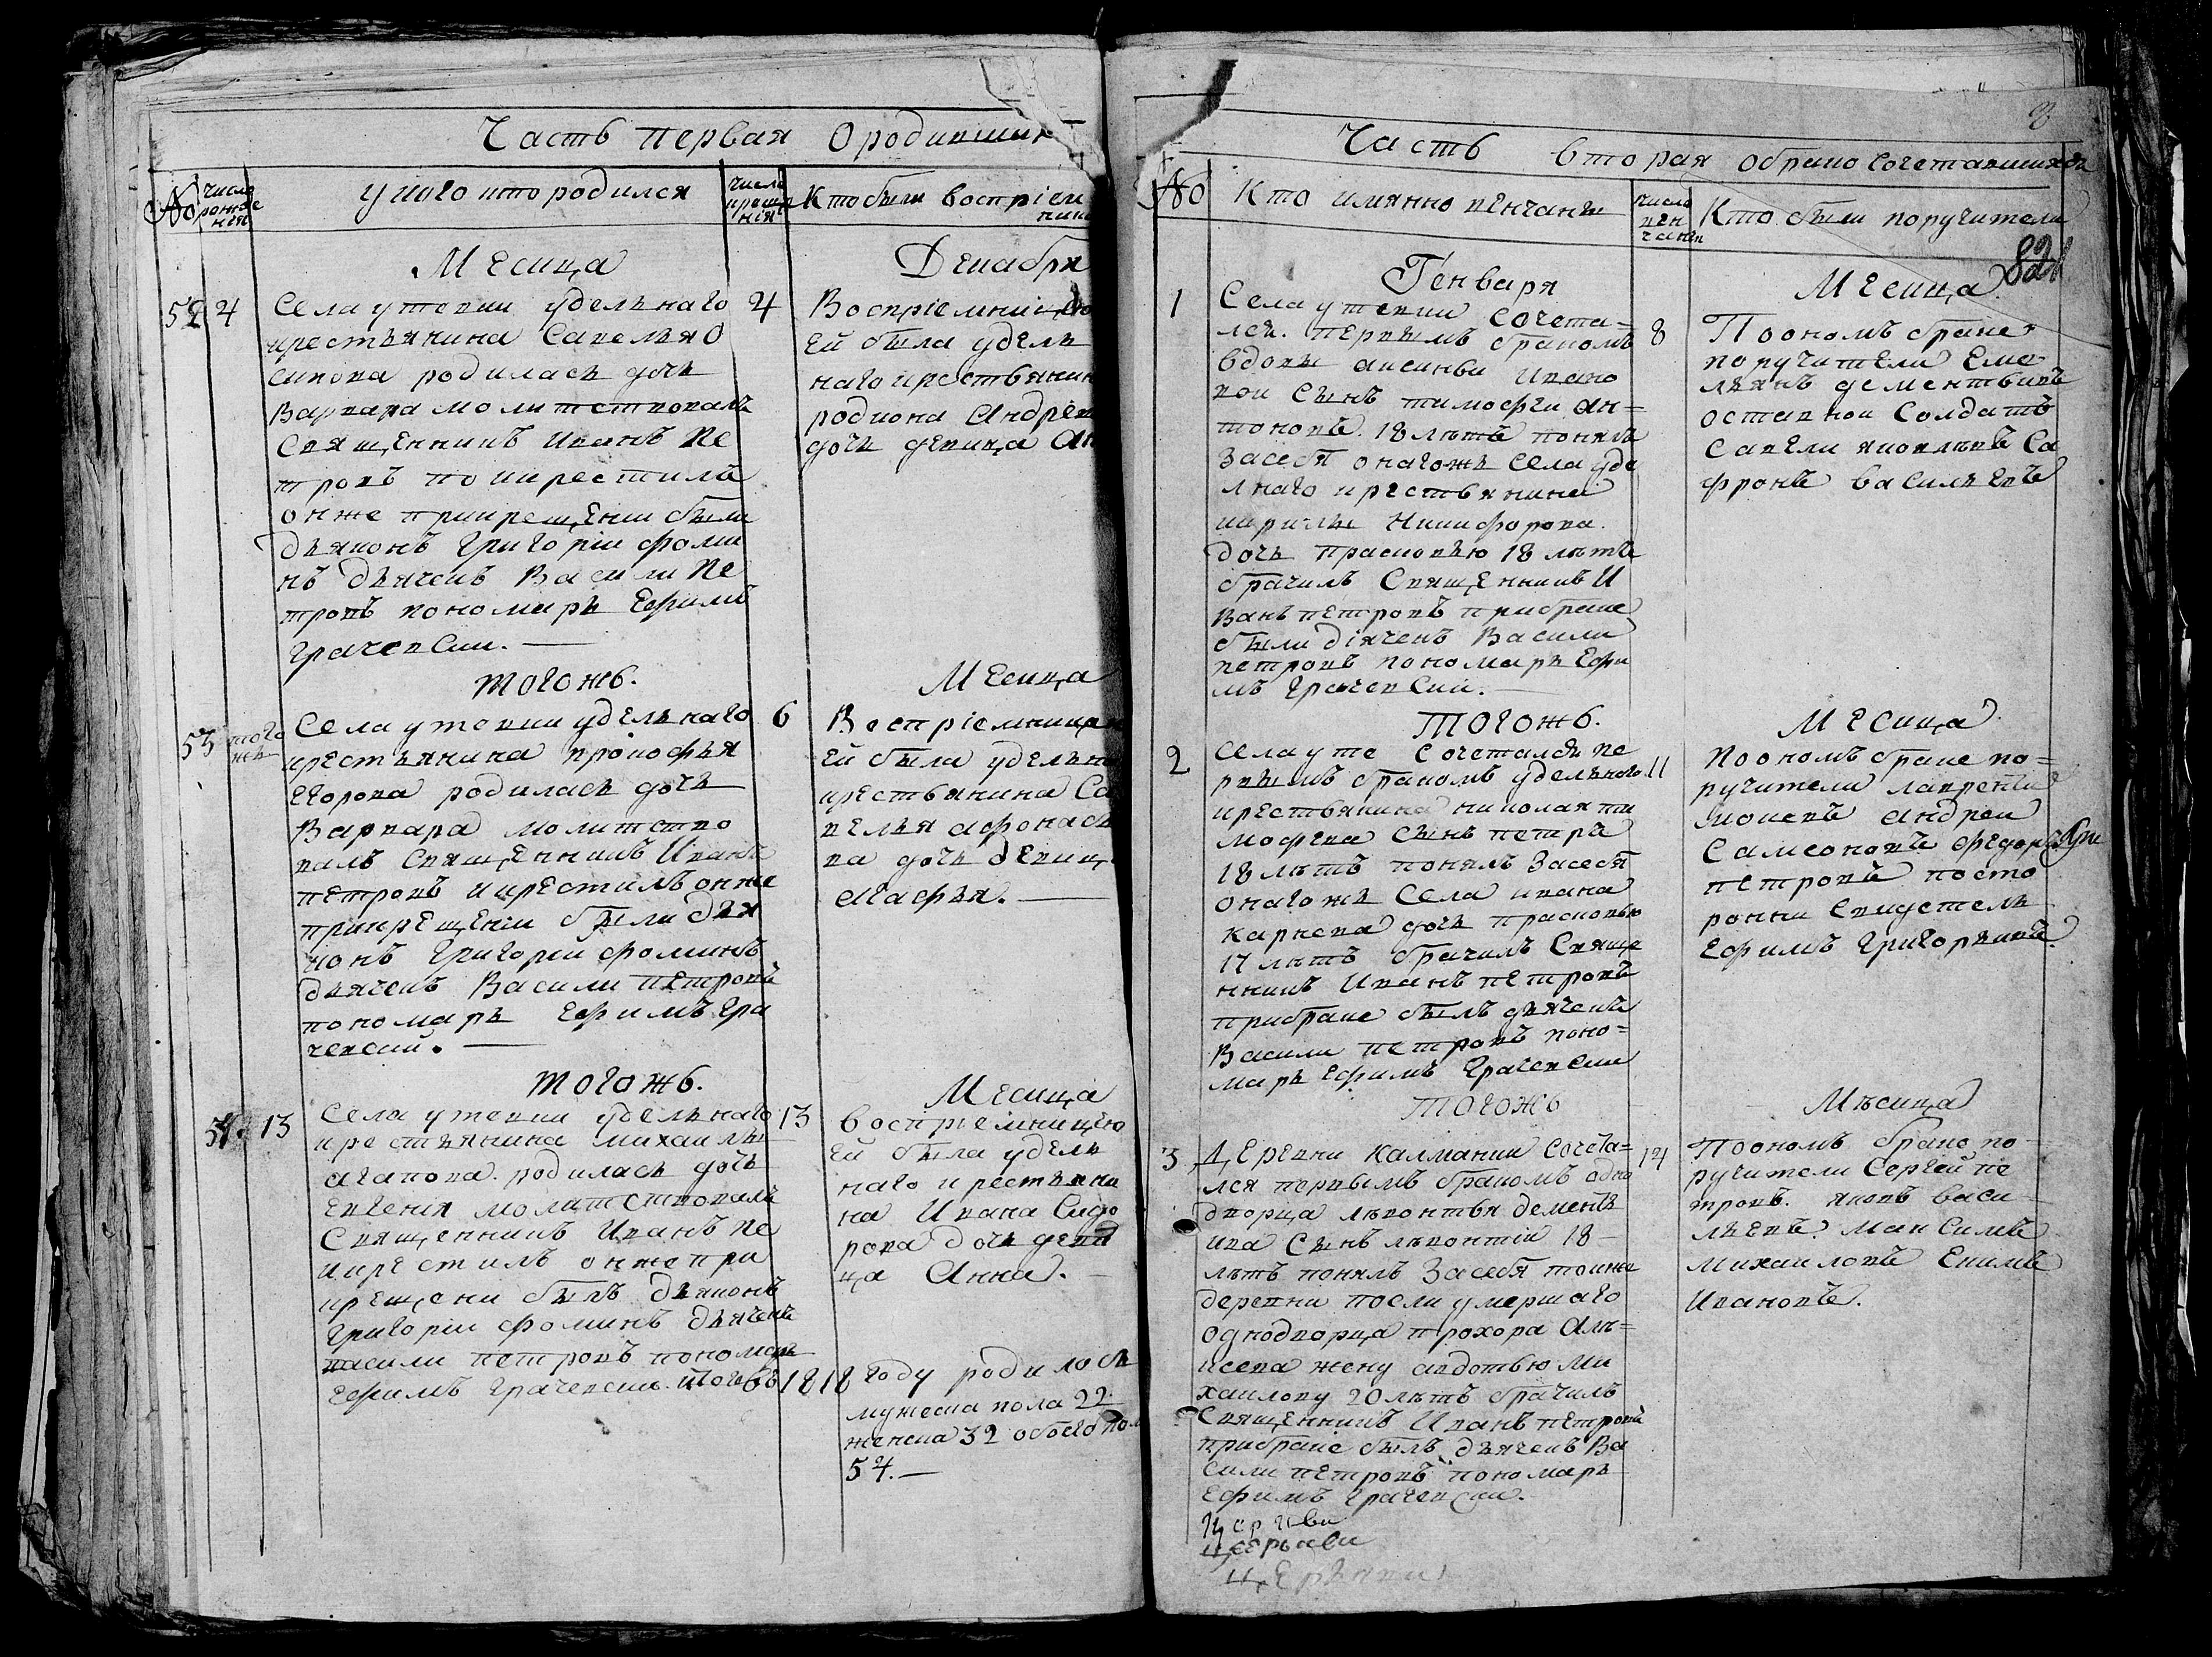 Часть первая О родивших
№
число рожде нія
у кого кто родился
число креще нія
Кто были воспріем ники
Месица Декабря
52 4 Села утевки удельнаго 4
крестьянина Савелья О
сипова родилась дочь
Варвара молитствовалъ
Священникъ Иванъ Пе
тровъ по икрестилъ
онже прикрещении были
дьяконъ Григоріи фоми
нъ дьячекъ Васили Пе
тровъ пономарь Ефимъ
Грачевски.
Воспріемни
ей была удель
наго крестьянин
родиона Андрев
дочь девица Ан
тогожъ. Месица
53 того жъ Села утевки удельнаго 6
крестьянина прокофья
егорова родилась дочь
Варвара молитство
валъ Священникъ Иванъ
петровъ икрестилъ онже
прикрещеніи были дья
конъ Григории фоминъ
дьячекъ Васили петровъ
пономарь Ефимъ Гра
чевски.
Воспріемница
ей была удельн
крестьянина Са
велья афонась
ва дочь девиц
агафья.
тогожъ. Месица
54 13 Села утевки удельнаго 13
крестьянина михаилы
агапова родилась дочь
Евгенія молитствовалъ
Священникъ Иванъ пе
икрестилъ онже при
крещени былъ дьяконъ
григоріи фоминъ дьячекъ
васили петровъ пономарь
Ефимъ Грачевски. Итого въ 1818 году родилось
воспріемницею
ей была удель
наго крестьяни
на Ивана Сидо
рова дочь деви
ца Анна.
мужеска пола 22
женска 32 обоего пол
54.
Часть вторая обрако Сочетавшихся
№
Кто имянно венчаны
число вен чания
Кто были поручители
821
Генваря Месица
1 Села утевки сочета=
лся. первымъ бракомъ 8
вдовы аксиньи Ивано
вои Сынъ тимофеи ан=
тоновъ. 18 лѣтъ понялъ
засебя онагожъ села уде
лнаго крестьянина
кирилы Никифорова.
дочь прасковью 18 лѣтъ
брачилъ Священникъ И
ванъ петровъ прибраке
были діячекъ Васили
петровъ пономарь Ефи
мъ Грачевски.
Поономъ браке
поручители Еме
льянъ дементьивъ
оставнои Солдатъ
Савели яковлевъ Са
фронъ васильевъ
тогожъ. Месица
2 села уте сочетался пе
рвымъ бракомъ удельнаго 11
крестьянина николая ти
мофева Сынъ петръ
18 лѣтъ понялъ засебя
онагоже Села ивана
карнева дочь прасковью
17 лѣтъ брачилъ Свяще
нникъ Иванъ петровъ
прибраке былъ дьячекъ
Васили петровъ поно=
марь Ефимъ Грачевски
поономъ браке по=
ручители лаврентіи
андреи
Самсоновъ федоръ
петровъ посто
ронни Свидетель
Ефимъ Григорьивъ.
тогожъ Мѣсица
3 Деревни Калманки Сочета= 14
лся первымъ бракомъ одно
дворца лѣвонтья деменьть
ива Сынъ лѣвонтіи 18
лѣтъ понялъ засебя тоиже
деревни посли умершаго
однодворца прохора алѣ=
ксева жену авдотью ми
хаилову 20 лѣтъ брачилъ
Священникъ Иванъ петровъ
прибраке былъ дьячекъ Ва
сили петровъ пономарь
Ефимъ Грачевски.
Поономъ браке по
ручители Сергей пе
тровъ. яковъ васи
льевъ. Максимъ
михаиловъ Екимъ
Ивановъ.
церкви
церькви